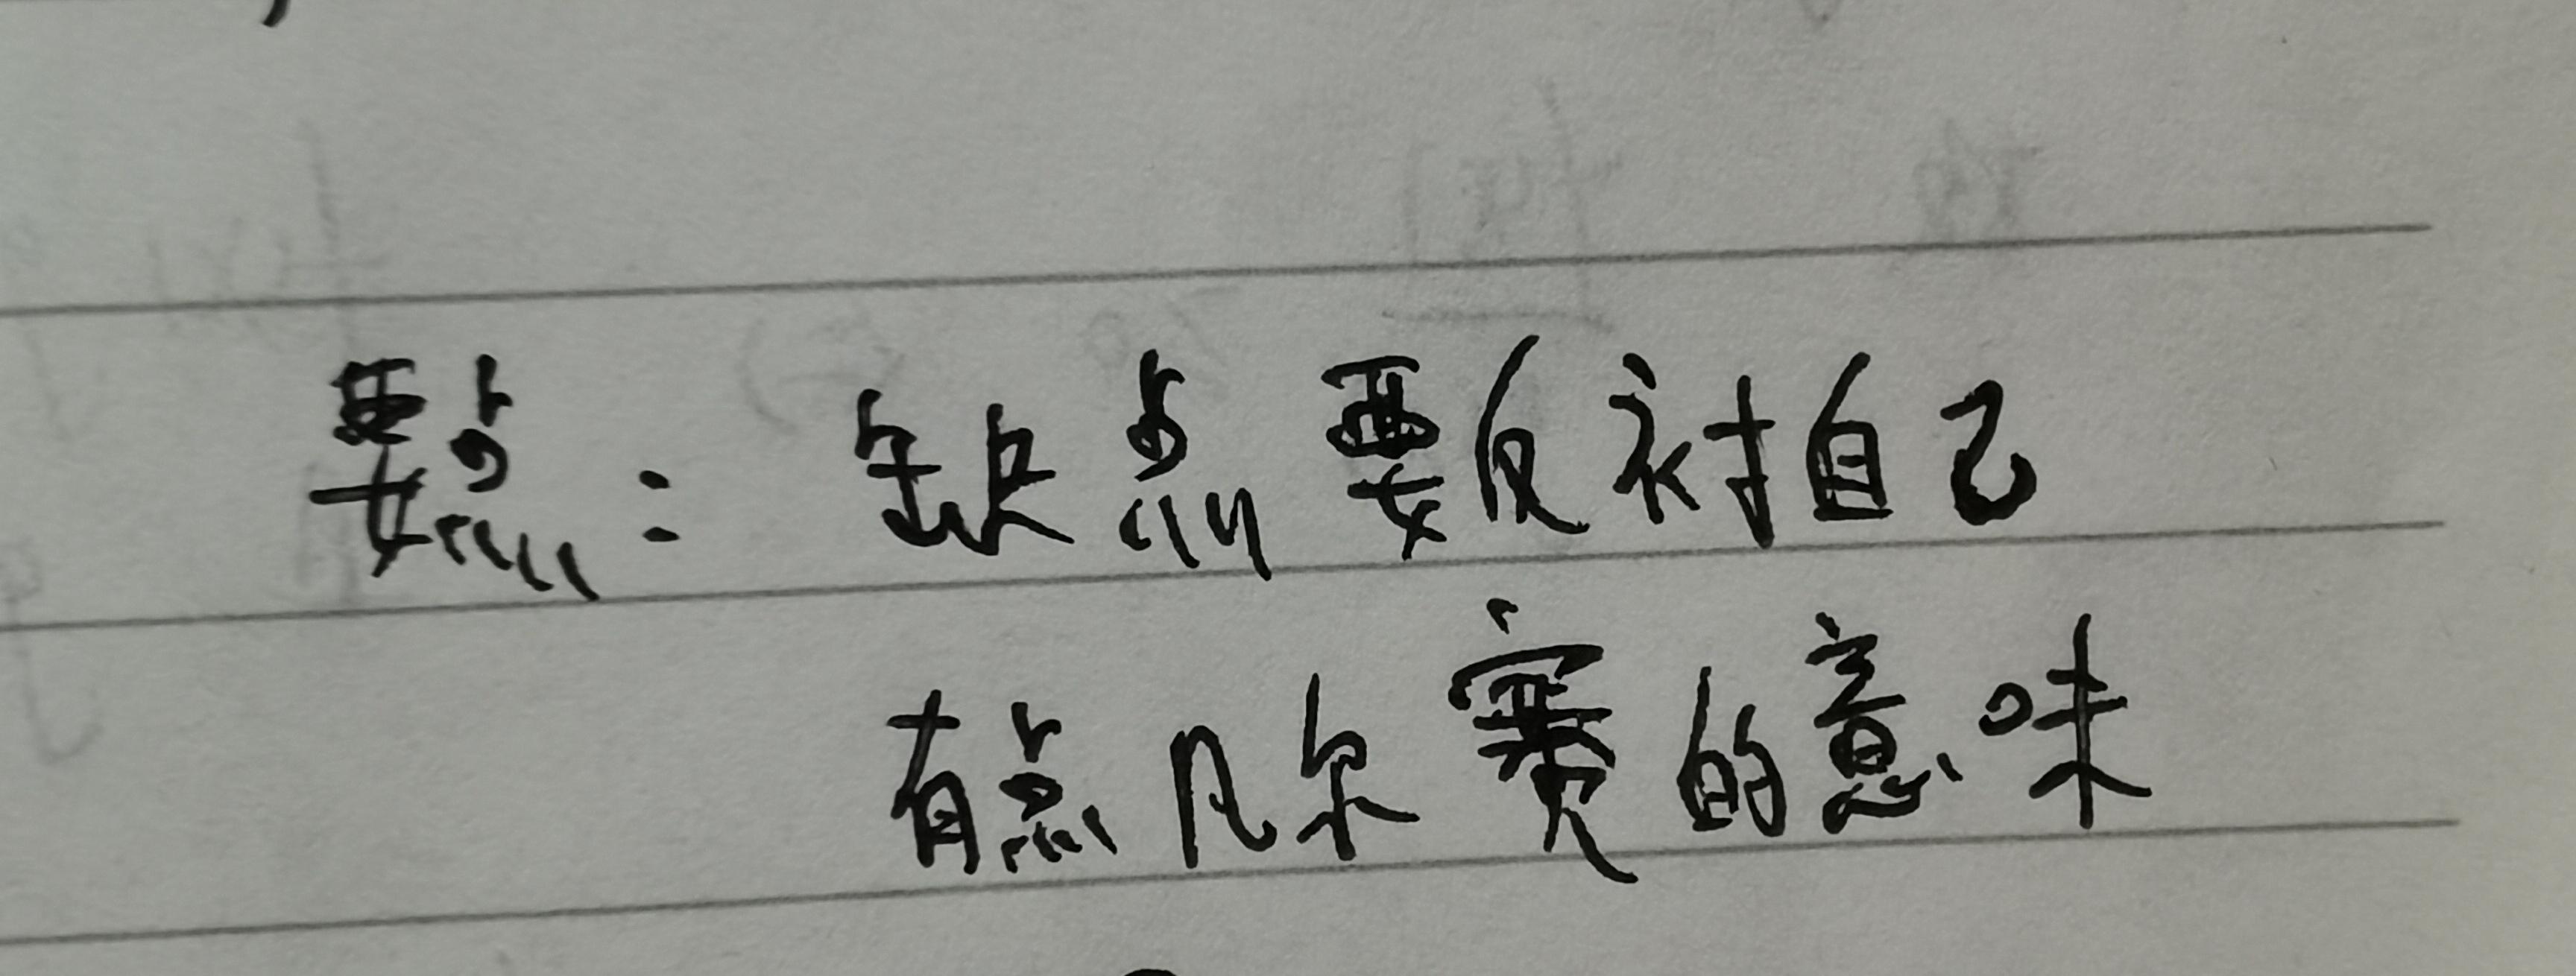 要点：缺点要反衬自己
有点凡尔赛的意味